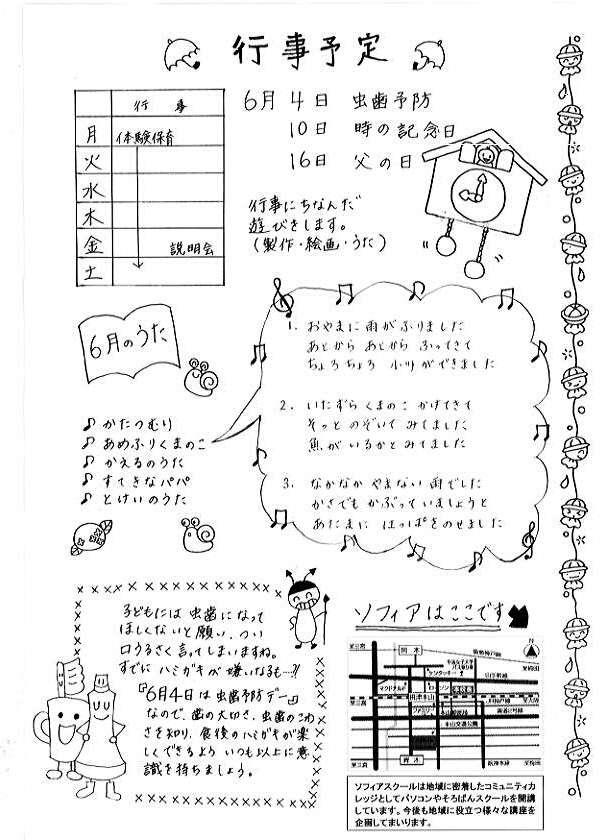 行事予定
行事
月 体験保育
火
水
木
金 説明会
土
6月4日 虫歯予防
10日 時の記念日
16日 父の日
行事にちなんだ
遊びをします。
(製作・絵画・うた)
6月のうた
♪ かたつむり
♪ あめふりくまのこ
♪ かえるのうた
♪ すてきなパパ
♪ とけいのうた
1. おやまに雨がふりました
あとから あとから ふってきて
ちょろちょろ 小川ができました
2. いたずら くまのこ かけてきて
そっと のぞいて みてました
魚が いるかと みてました
3. なかなか やまない 雨でした
かさでも かぶって いましょうと
あたまに はっぱを のせました
子どもには 虫歯になって
ほしくないと願い、つい
口うるさく言ってしまいますね。
すでに ハミガキが嫌いな子も…!!
『6月4日は虫歯予防デー』
なので、歯の大切さ、虫歯のこわ
さを知り、食後のハミガキが楽
しくできるよう いつも以上に意
識を持ちましょう。
ソフィアはここです
N
至三宮
至梅田
山手幹線
ケンタッキー
マクドナルド
至三宮
至大阪
国道2号線
本山交通公園
至三宮
阪神本線
至梅田
ソフィアスクールは地域に密着したコミュニティカ
レッジとしてパソコンやそろばんスクールを開講
しています。今後も地域に役立つ様々な講座を
企画してまいります。